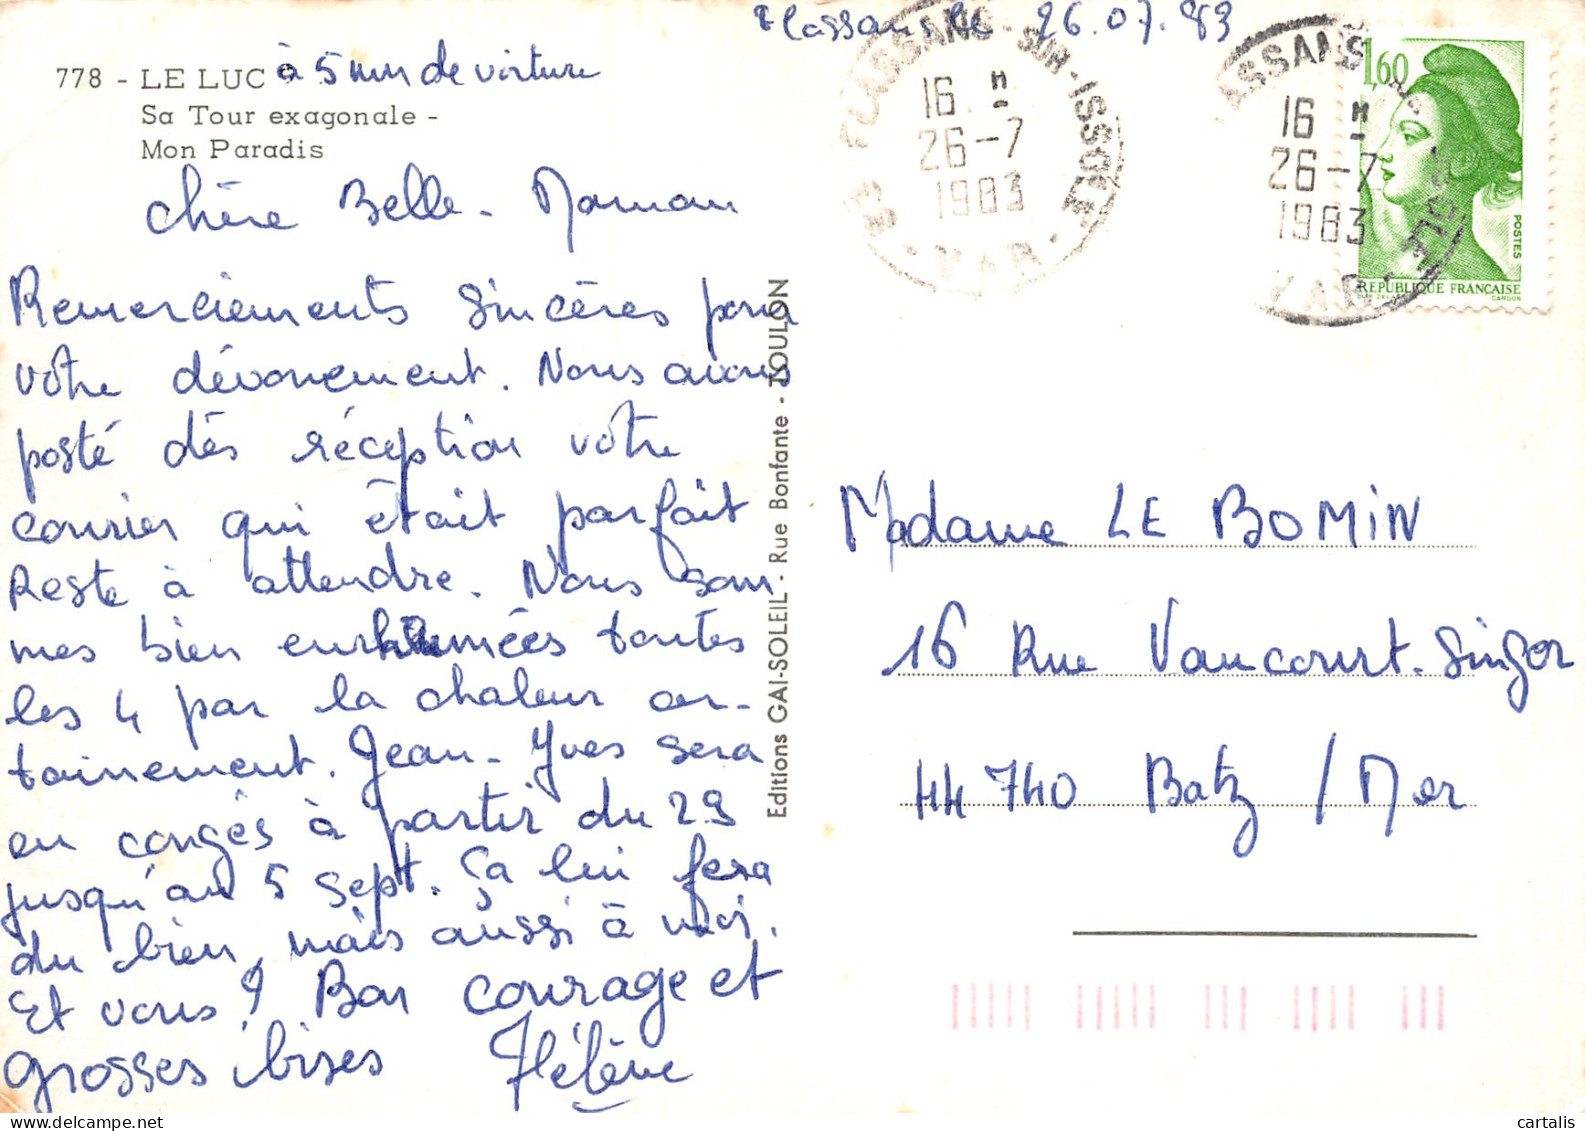 Flassans le 26.07.83
778 - LE LUC à 5 mn de voiture
Sa Tour exagonale -
Mon Paradis
Chère Belle-Maman
Remerciements sincères pour
votre dévouement. Nous avons
posté dès réception votre
courrier qui était parfait
Reste à attendre. Nous som-
mes bien enrhumées toutes
les 4 par la chaleur cer-
tainement. Jean-Yves sera
en congés à partir du 29
jusqu'au 5 sept. Ça lui fera
du bien, mais aussi à moi.
Et vous ? Bon courage et
grosses bises Hélène
Editions GAI-SOLEIL - Rue Bonfante - TOULON
83 FLASSANS-SUR-ISSOLE
16 H
26-7
1983
- VAR -
ASSANS
16 H
26-7
1983
VAR
1,60
POSTES
REPUBLIQUE FRANÇAISE
Madame LE BOMIN
16 Rue Vaucourt-Singor
44 740 Batz / Mer
cartalis